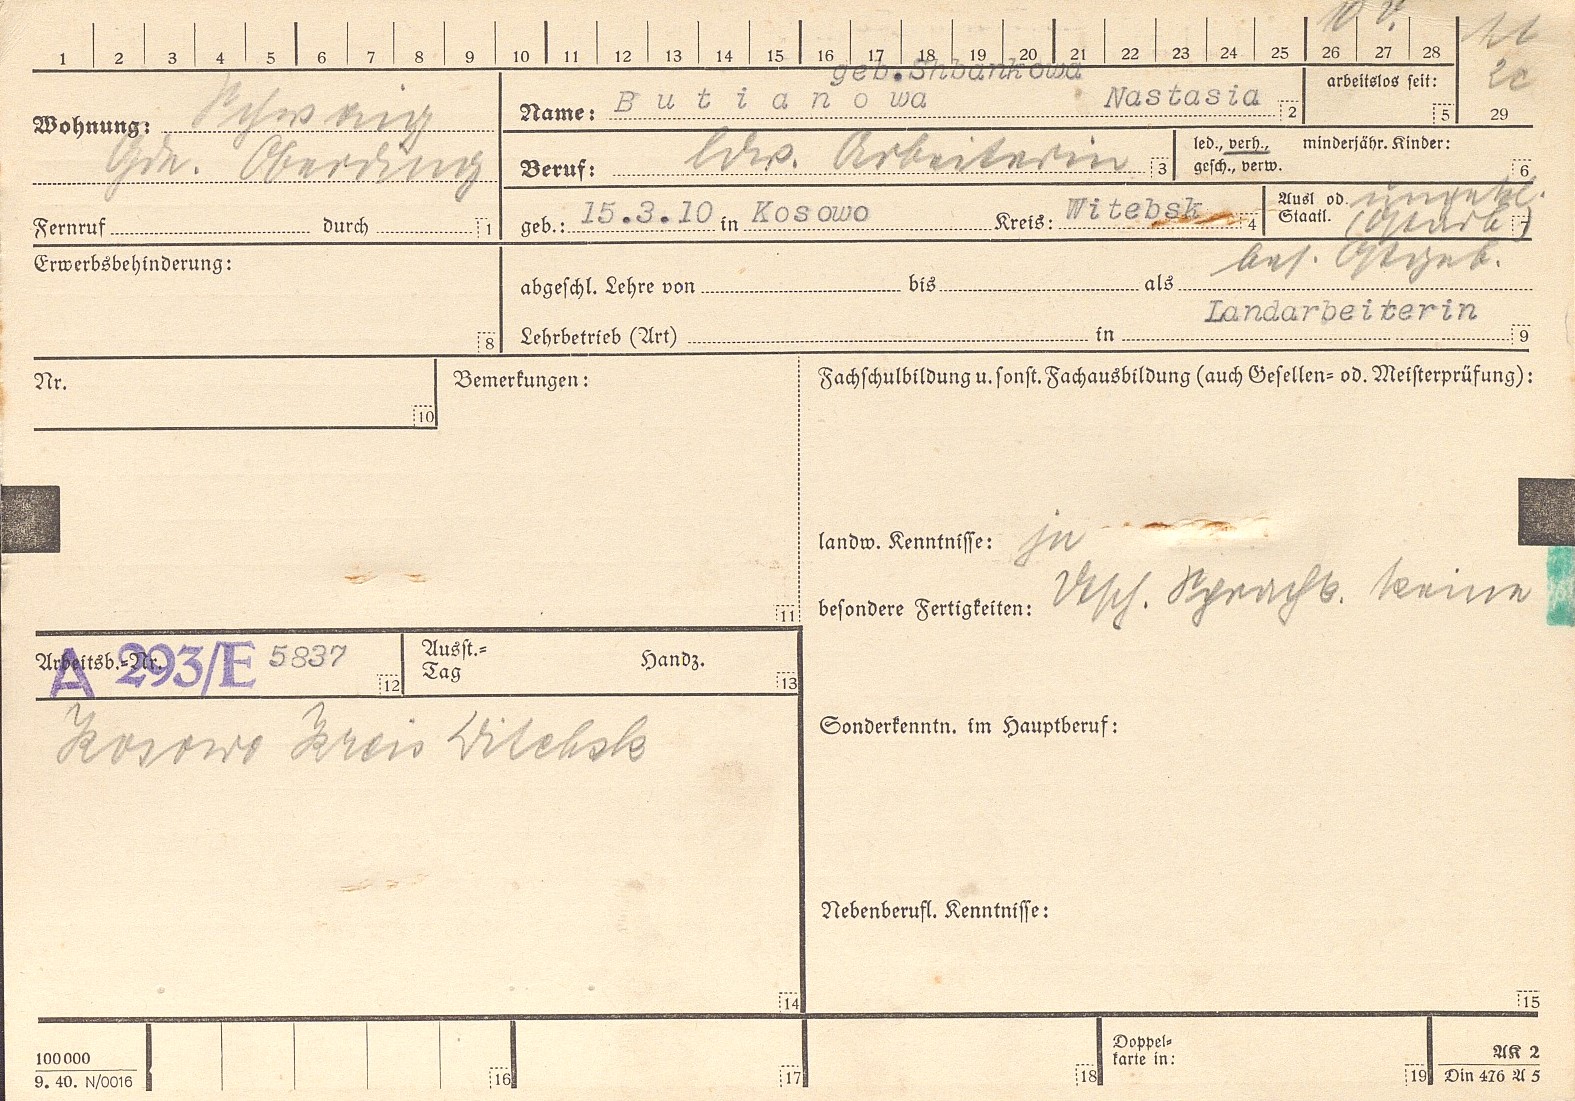 1 2 3 4 5 6 7 8 9 10 11 12 13 14 15 16 17 18 19 20 21 22 23 24 25 26 27 28
geb. Shbankowa
Wohnung: Schwaig
Gde. Oberding
Name: Butianowa Nastasia 2
arbeitslos seit: 5
29
Beruf: ldw. Arbeiterin 3
led., verh., gesch., verw.
minderjähr. Kinder: 6
Fernruf durch 1
geb.: 15.3.10 in Kosowo Kreis: Witebsk 4
Ausl od. Staatl. ungekl. 7
(Ostarb)
bes. Ostgeb.
Erwerbsbehinderung: 8
abgeschl. Lehre von bis als
Landarbeiterin
Lehrbetrieb (Art) in 9
Nr. 10
Bemerkungen: 11
Fachschulbildung u. sonst. Fachausbildung (auch Gesellen= od. Meisterprüfung):
landw. Kenntnisse: ja
besondere Fertigkeiten: Dtsch. Sprachk. keine
Arbeitsb.=Nr. A 293/E 5837 12
Ausst.=Tag Handz. 13
Kosowo Kreis Witebsk
Sonderkenntn. im Hauptberuf:
Nebenberufl. Kenntnisse:
14
15
100 000
9. 40. N/0016
16
17
18
Doppel=
karte in:
19
AK 2
Din 476 A 5